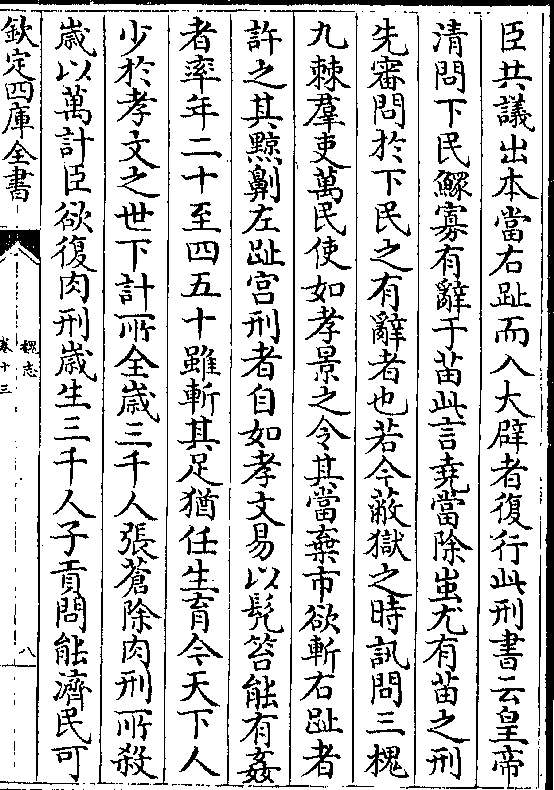 臣共議出本當右趾而入大辟者復行此刑書云皇帝
清問下民鰥寡有辭于苗此言堯當除蚩尤有苗之刑
先審問於下民之有辭者也若今蔽獄之時訊問三槐
九棘羣吏萬民使如孝景之令其當棄市欲斬右趾者
許之其黥劓左趾宫刑者自如孝文易以髠笞能有姦
者率年二十至四五十雖斬其足猶任生育今天下人
少於孝文之世下計所全歲三千人張蒼除肉刑所殺
歲以萬計臣欲復肉刑歲生三千人子貢問能濟民可
欽定四庫全書
魏志
卷十三
八